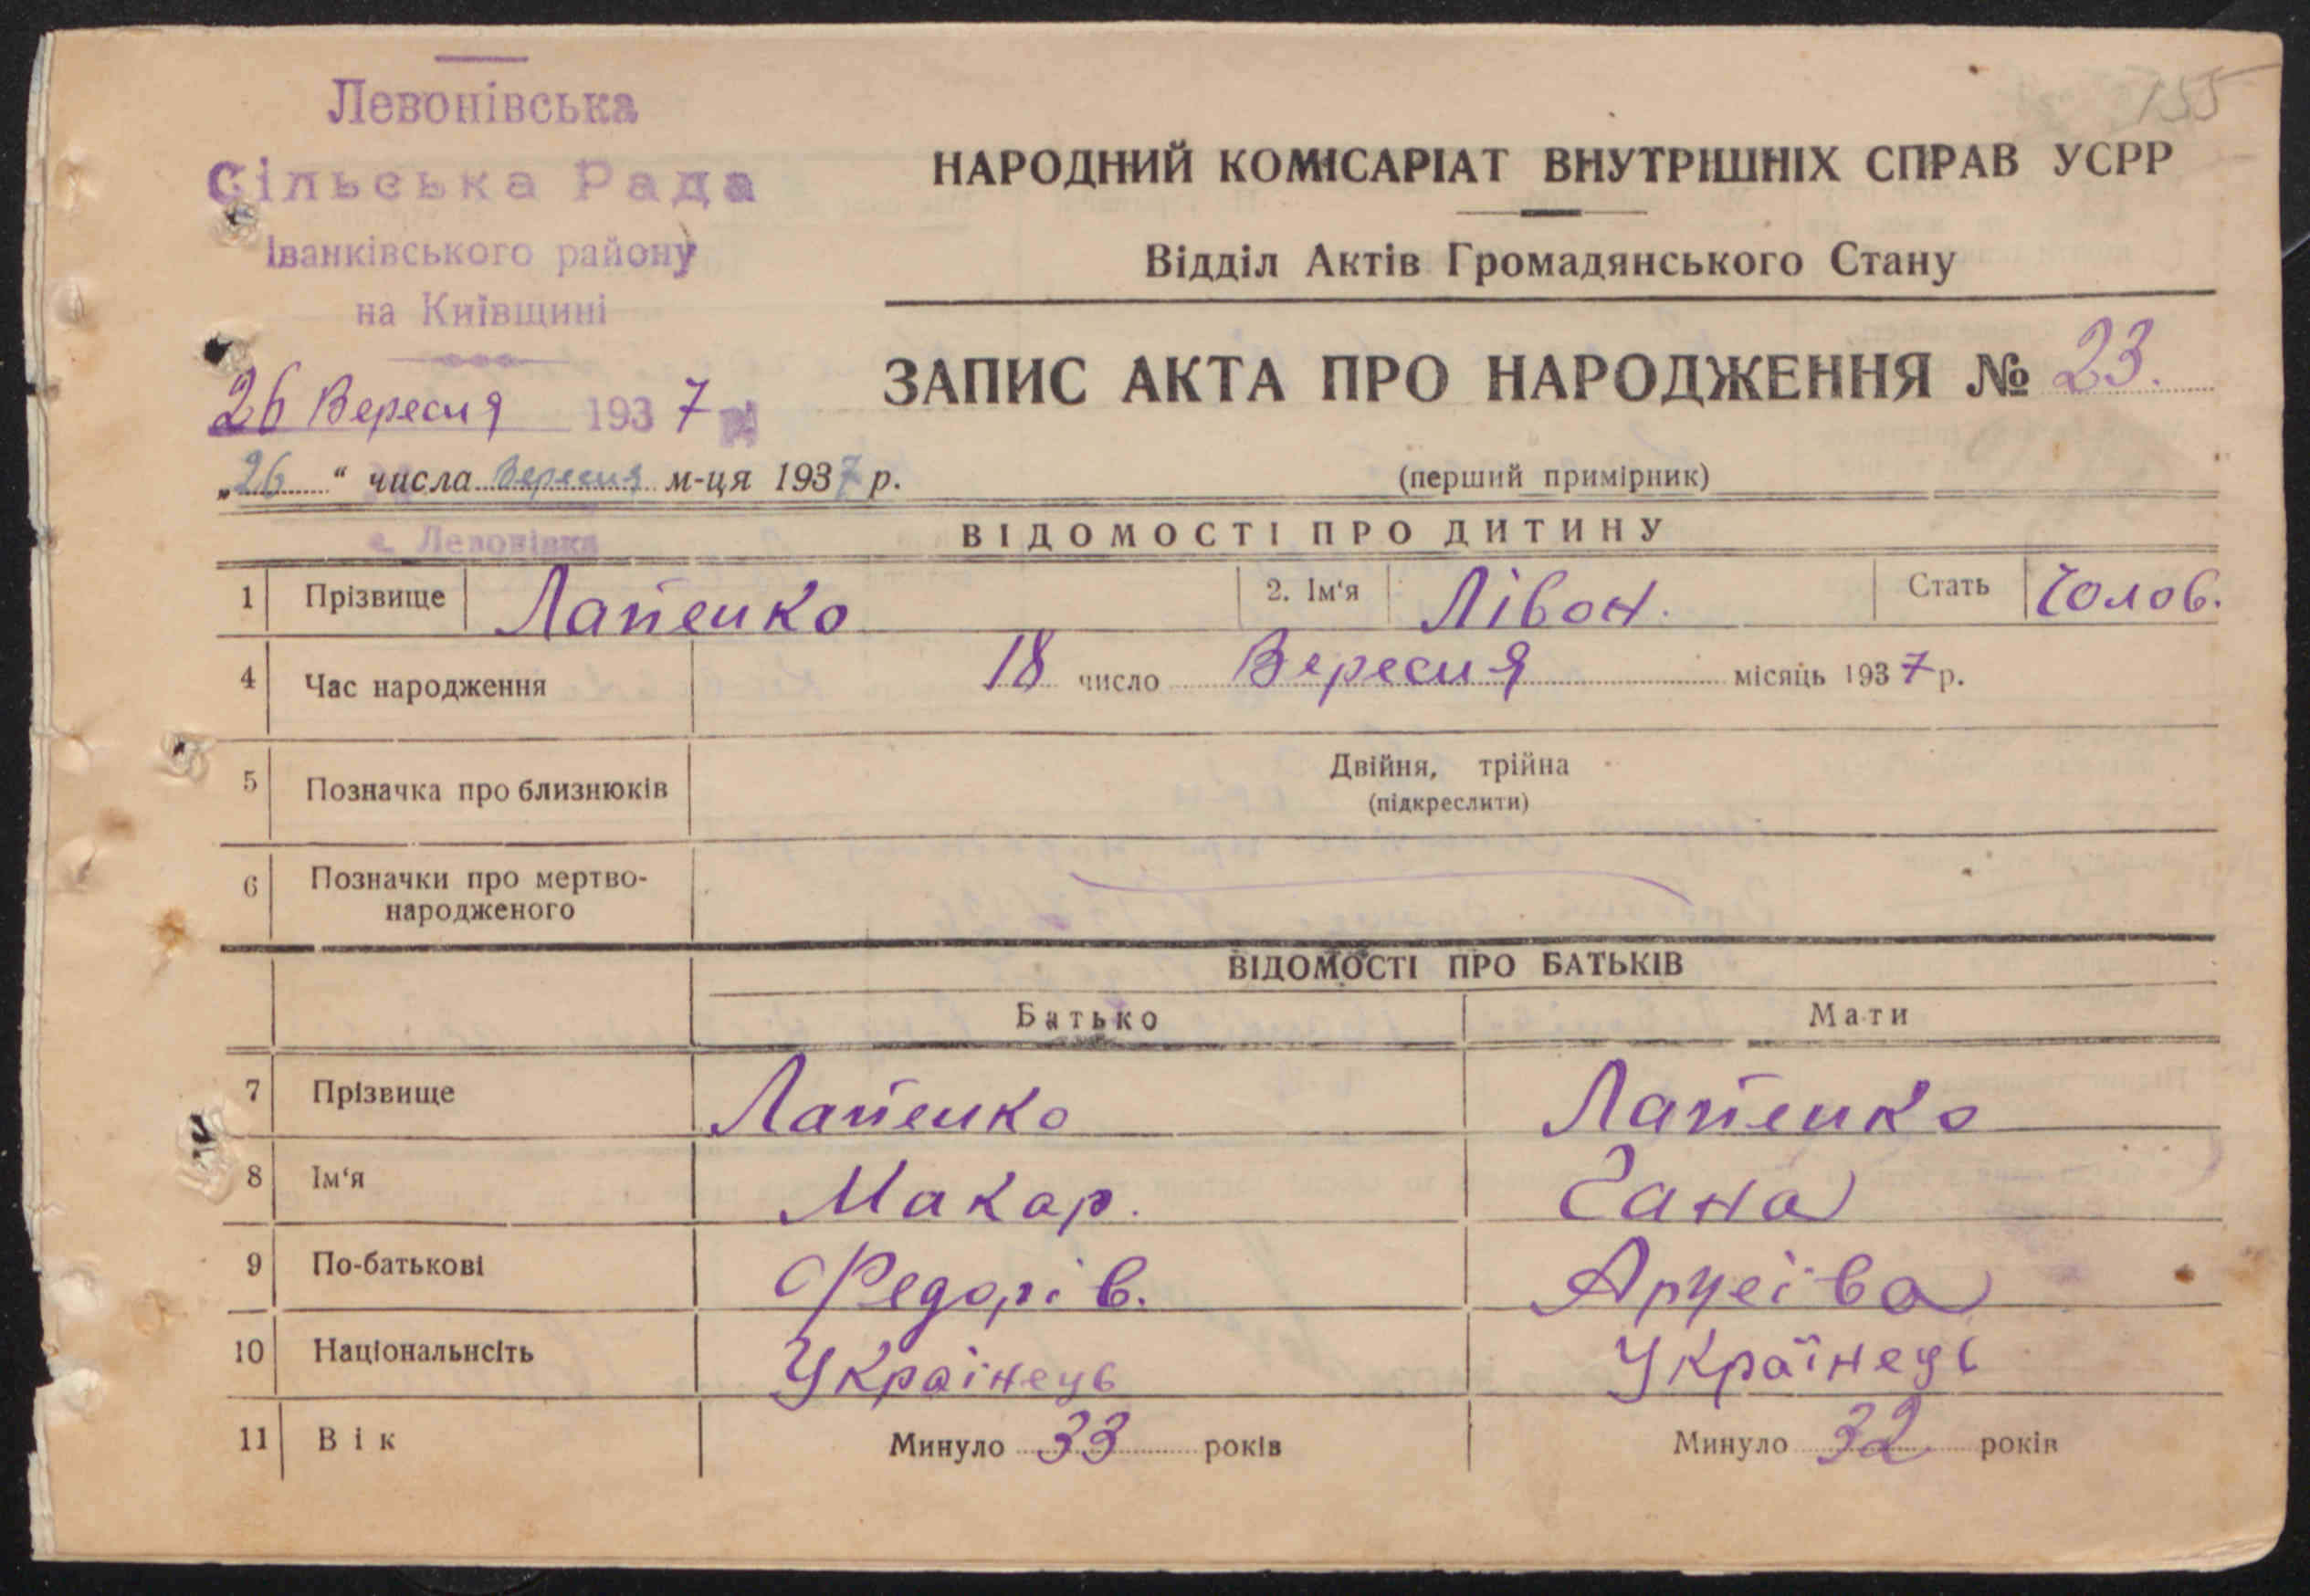 155
Левонівська
Сільська Рада
Іванківського району
на Київщині
26 Вересня 1937
НАРОДНИЙ КОМІСАРІАТ ВНУТРІШНІХ СПРАВ УСРР
Відділ Актів Громадянського Стану
ЗАПИС АКТА ПРО НАРОДЖЕННЯ № 23.
„26“ числа Вересня м-ця 1937 р.
(перший примірник)
с. Левонівка
ВІДОМОСТІ ПРО ДИТИНУ
1 Прізвище Лапенко 2. Ім‘я Лівон. Стать Чолов.
4 Час народження 18 число Вересня місяць 1937 р.
5 Позначка про близнюків Двійня, трійна
(підкреслити)
6 Позначки про мертво-
народженого
ВІДОМОСТІ ПРО БАТЬКІВ
Батько Мати
7 Прізвище Лапенко Лапенко
8 Ім‘я Макар. Гана
9 По-батькові Федорів.
10 Національнсіть Українець Українець
11 Вік Минуло 33 років Минуло 32 років